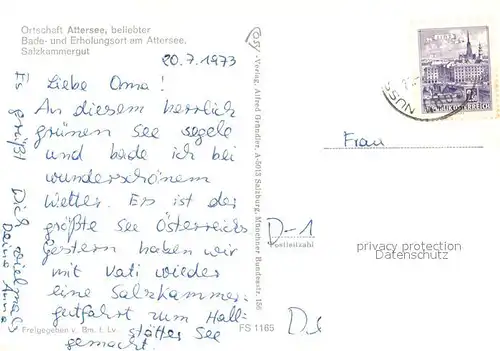 Ortschaft Attersee, beliebter
Bade- und Erholungsort am Attersee,
Salzkammergut
20.7.1973
Liebe Oma!
An diesem herrlich
grünen See segele
und bade ich bei
wunderschönem
Wetter. Er ist der
größte See Österreichs
Gestern haben wir
mit Vati wieder
eine Salzkammer-
gutfahrt zum Hall-
stätter See
gemacht.
Es grüßt Dich vielmals
Deine Anna
Freigegeben v. Bm. f. Lv
FS 1165
Cosy-Verlag, Alfred Gründler, A-5013 Salzburg, Münchner Bundesstr. 156
NUSS
REPUBLIK ÖSTERREICH
Frau
D-1
Postleitzahl
privacy protection
Datenschutz